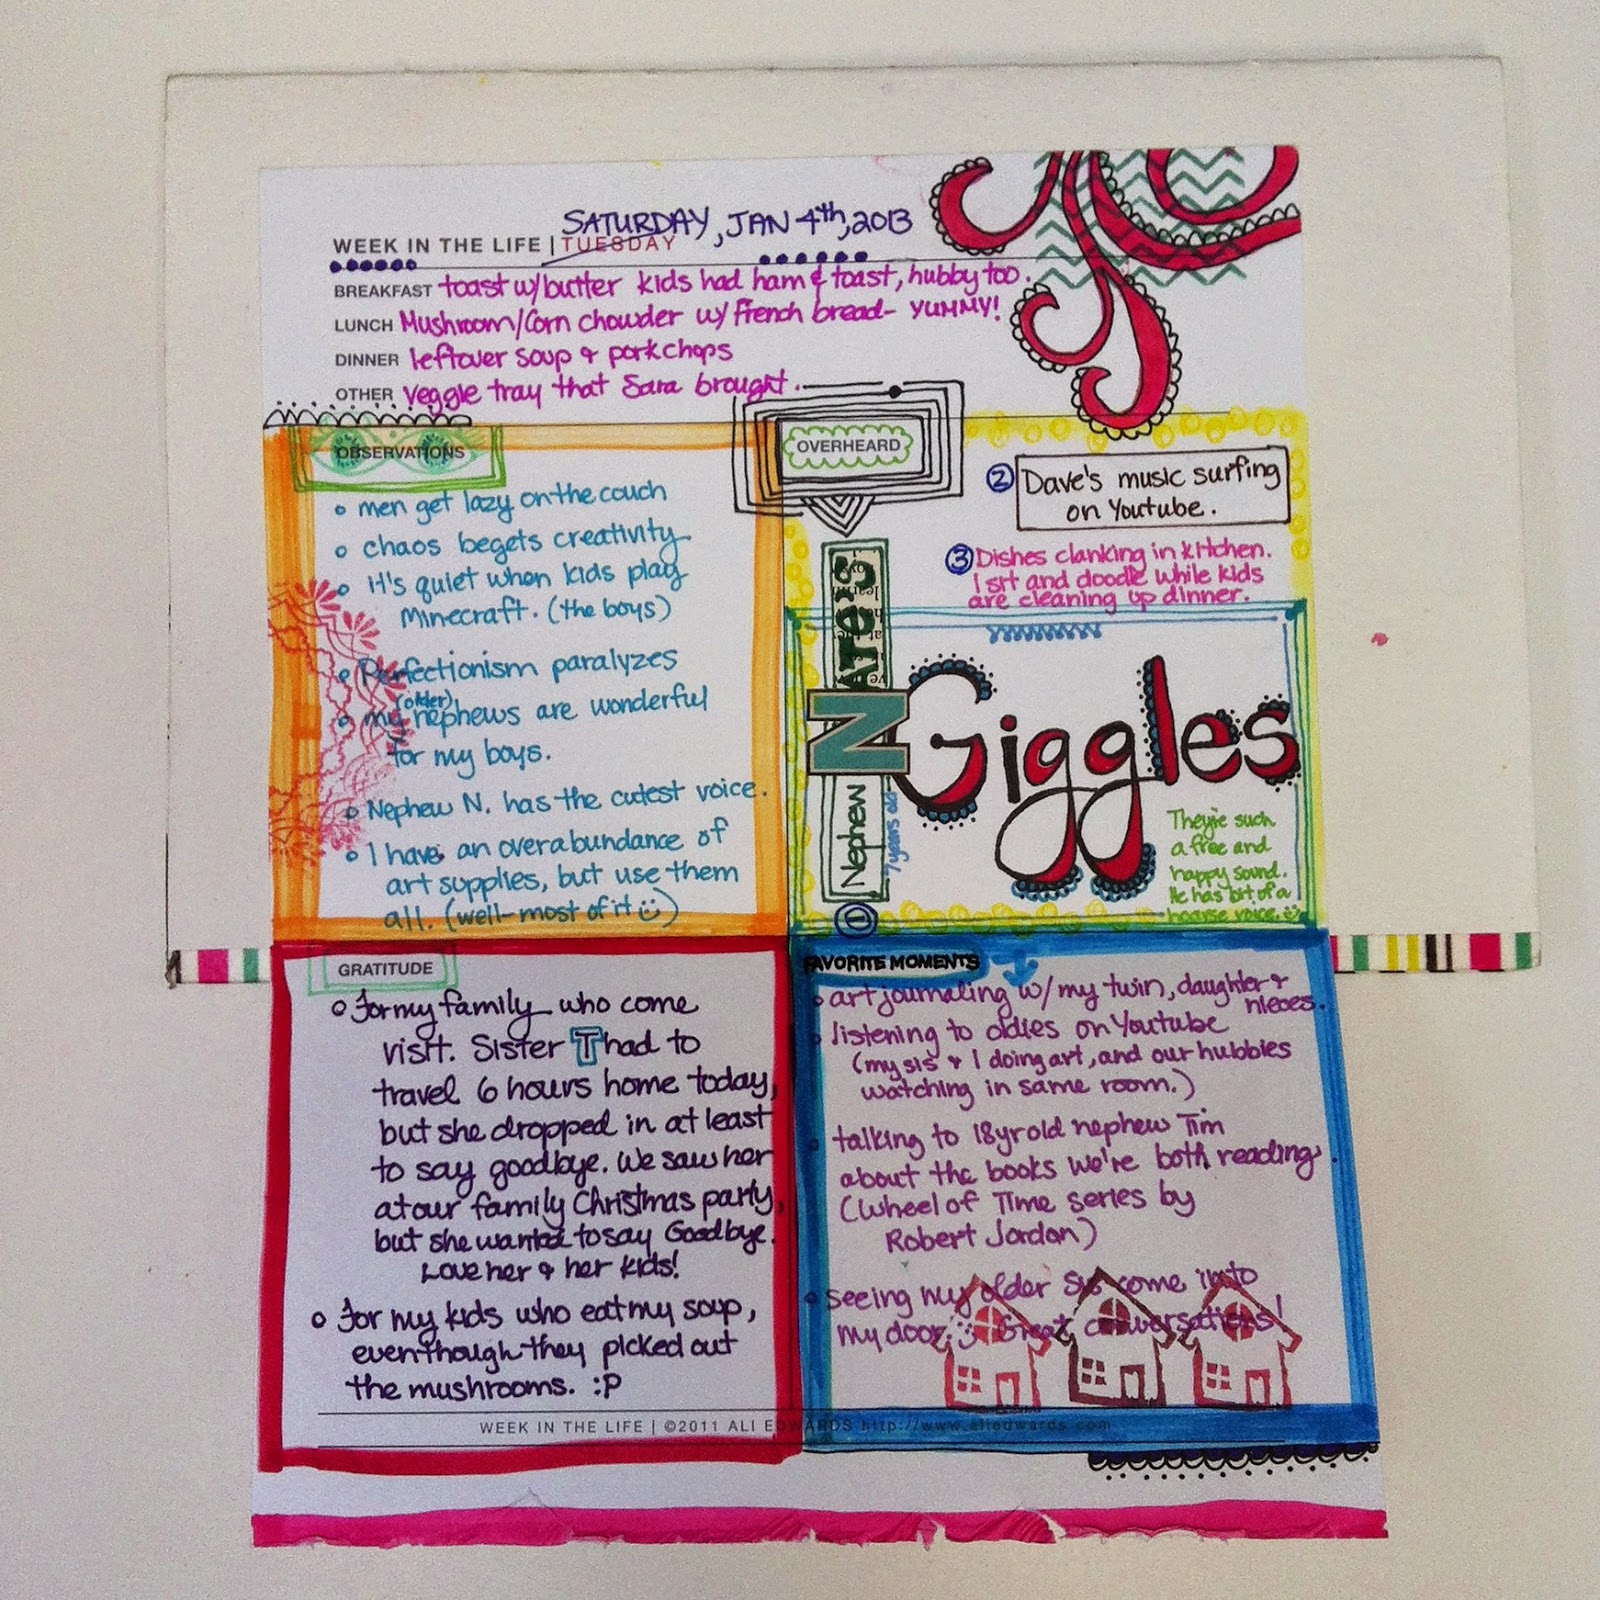 SATURDAY, JAN 4th, 2013
WEEK IN THE LIFE | TUESDAY
BREAKFAST toast w/butter kids had ham & toast, hubby too.
LUNCH Mushroom/Corn chowder w/ French bread- YUMMY!
DINNER leftover soup & porkchops
OTHER veggie tray that Sara brought.
OBSERVATIONS
men get lazy on the couch
chaos begets creativity
it's quiet when kids play
Minecraft. (the boys)
Perfectionism paralyzes
(older)
my nephews are wonderful
for my boys.
Nephew N. has the cutest voice.
I have an overabundance of
art supplies, but use them
all. (well-most of it)
OVERHEARD
② Dave's music surfing
on Youtube.
③ Dishes clanking in kitchen.
I sit and doodle while kids
are cleaning up dinner.
①
Nephew
N
ATE'S
7 years old
Giggles
They're such
a free and
happy sound.
He has bit of a
hoarse voice.
GRATITUDE
For my family who come
visit. Sister T had to
travel 6 hours home today,
but she dropped in at least
to say goodbye. We saw her
at our family Christmas party,
but she wanted to say Goodbye.
Love her & her kids!
For my kids who eat my soup,
even though they picked out
the mushrooms. :P
FAVORITE MOMENTS
art journaling w/ my twin, daughter &
nieces.
listening to oldies on Youtube
(my sis & I doing art, and our hubbies
watching in same room.)
talking to 18 yr old nephew Tim
about the books we're both reading.
(Wheel of Time series by
Robert Jordon)
seeing my older sis come in to
my door. Great conversations!
WEEK IN THE LIFE | ©2011 ALI EDWARDS http://www.aliedwards.com